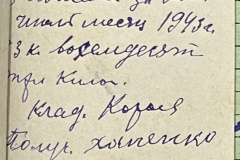 месяц 1943 г.
восемдесят
три кило.
Клад. Короя
Получ. Ханенко